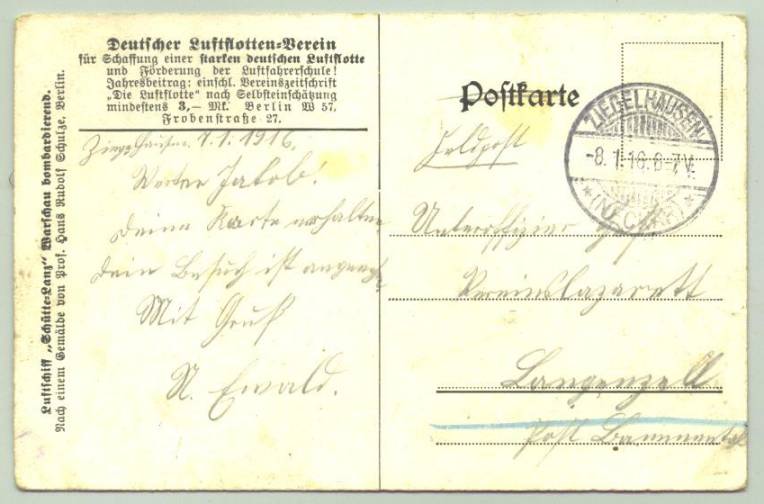 Deutscher Luftflotten-Verein
für Schaffung einer starken deutschen Luftflotte
und Förderung der Luftfahrerschule!
Jahresbeitrag: einschl. Vereinszeitschrift
„Die Luftflotte“ nach Selbsteinschätzung
mindestens 3,— Mk. Berlin W 57,
Frobenstraße 27.
Luftschiff „Schütte-Lanz“ Warschau bombardierend.
Nach einem Gemälde von Prof. Hans Rudolf Schulze, Berlin.
7.1.1916.
Werter Jakob!
Deine Karte erhalten
Dein Besuch ist
Mit Gruß
A. Ewald.
Postkarte
ZIEGELHAUSEN
-8.1.16.6-7V.
(NECKAR)
Feldpost
Unteroffizier
Vereinslazarett
Langenzell
Post Bammental